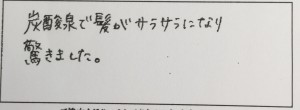 炭酸泉で髪がサラサラになり
驚きました。